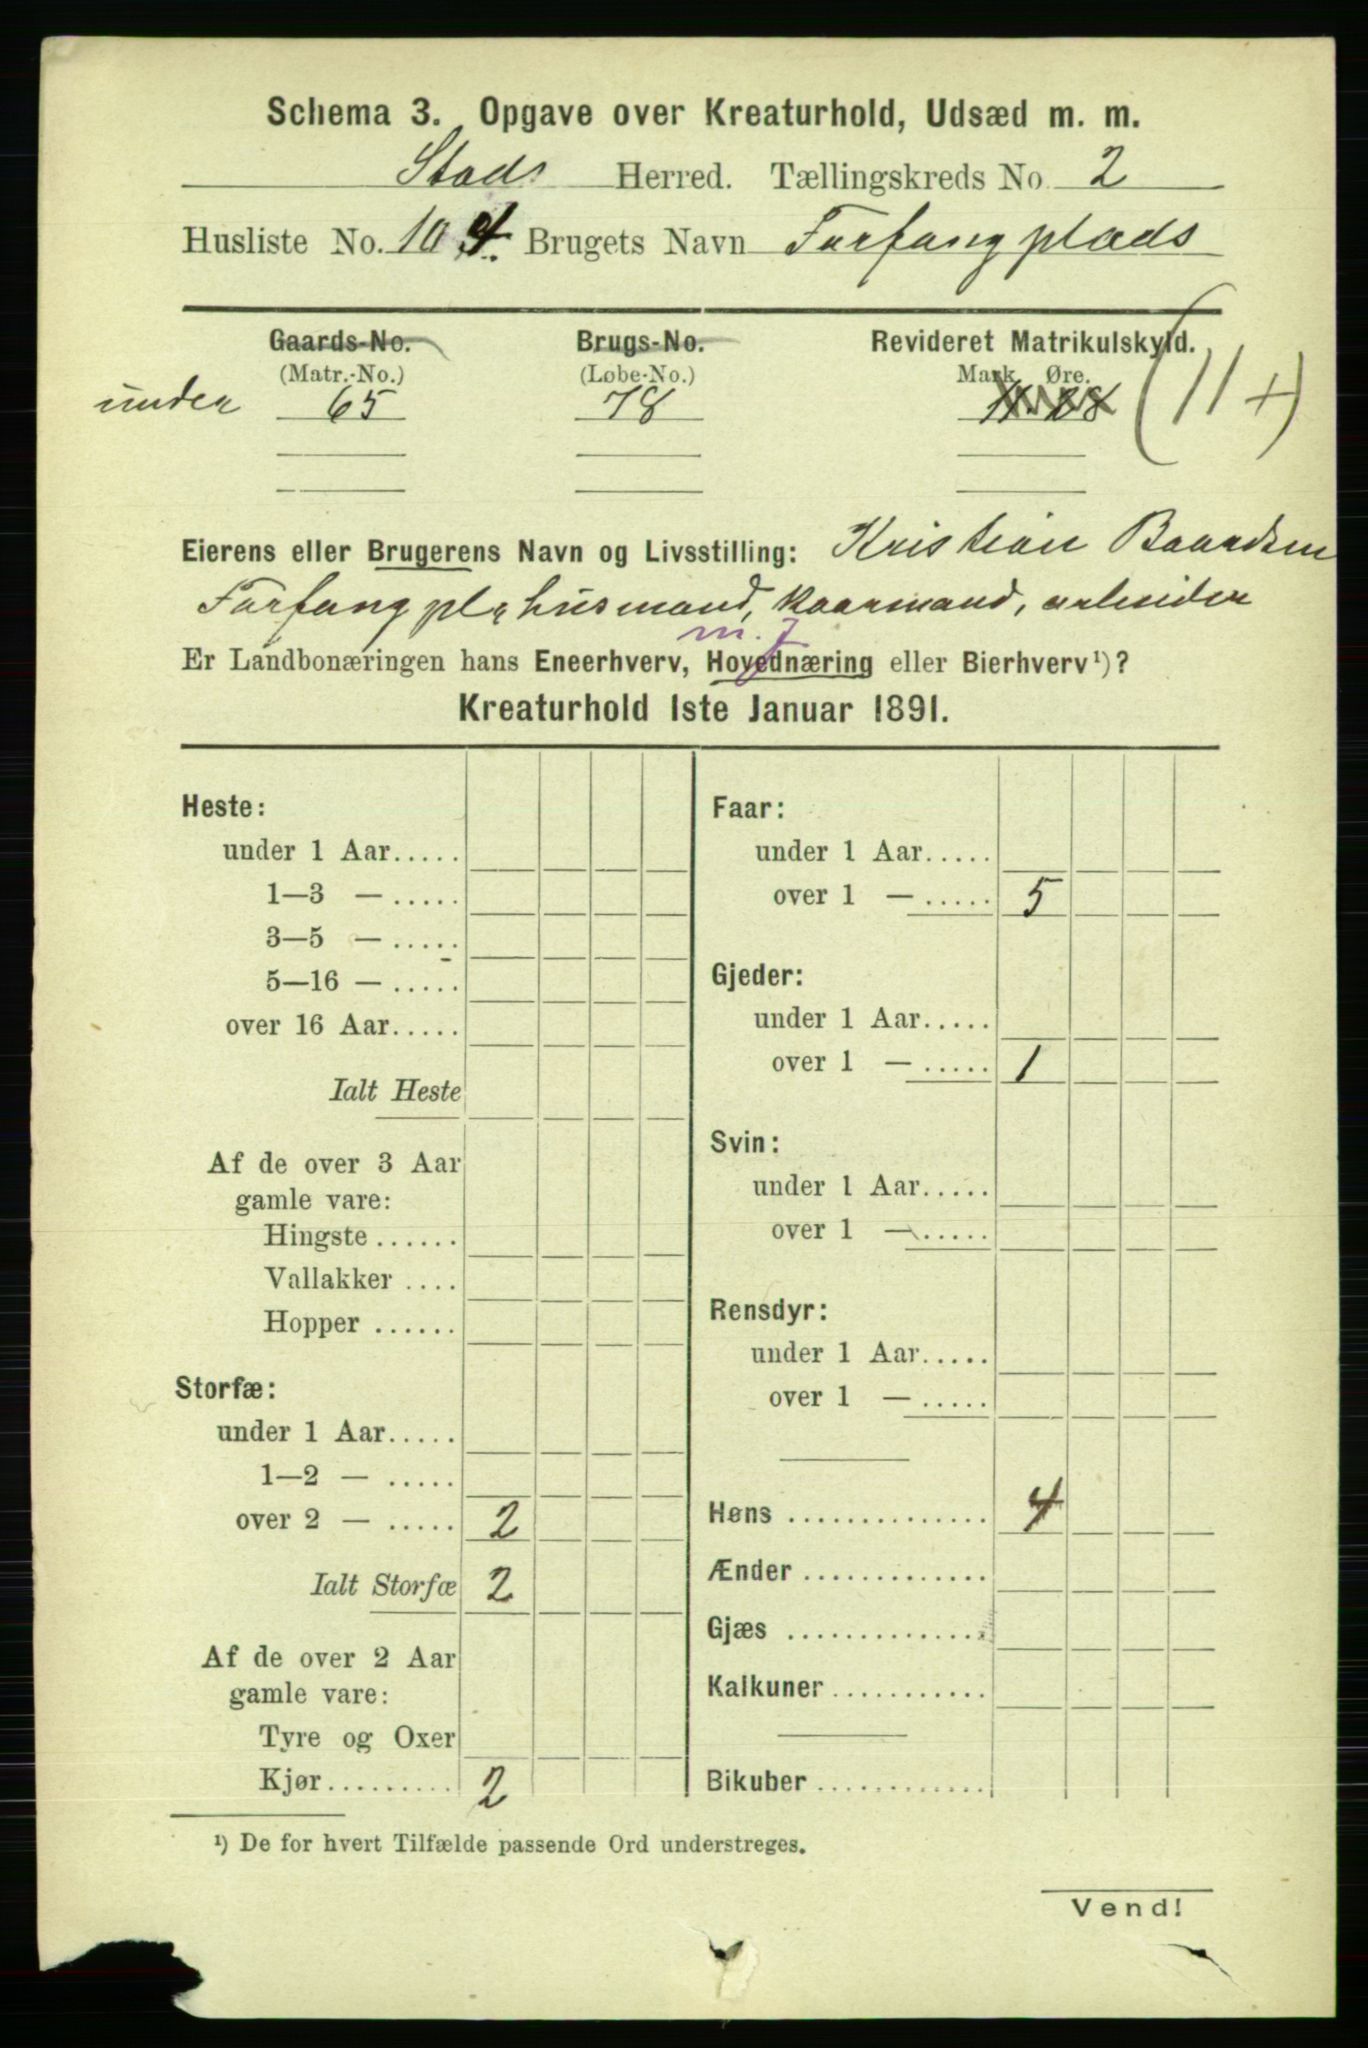 Schema 3. Opgave over Kreaturhold, Udsæd m. m.
Stods Herred. Tællingskreds No. 2
Husliste No. 104. Brugets Navn Furfang plads
Gaards-No. Brugs-No. Revideret Matrikulskyld.
(Matr.-No.) (Løbe-No.) Mark Øre.
under 65 78 (11+)
Eierens eller Brugerens Navn og Livsstilling: Kristian Baardsen
Furfang pl, husmand, kaarmand, arbeider
m. J
Er Landbonæringen hans Eneerhverv, Hovednæring eller Bierhverv¹)?
Kreaturhold 1ste Januar 1891.
Heste:
under 1 Aar.....
1—3 — .....
3—5 — .....
5—16 — .....
over 16 Aar.....
Ialt Heste
Af de over 3 Aar
gamle vare:
Hingste ......
Vallakker ....
Hopper ......
Storfæ:
under 1 Aar.....
1—2 — .....
over 2 — ..... 2
Ialt Storfæ 2
Af de over 2 Aar
gamle vare:
Tyre og Oxer
Kjør......... 2
Faar:
under 1 Aar.....
over 1 — ..... 5
Gjeder:
under 1 Aar.....
over 1 — ..... 1
Svin:
under 1 Aar.....
over 1 — .....
Rensdyr:
under 1 Aar.....
over 1 — .....
Høns .............. 4
Ænder .............
Gjæs ..............
Kalkuner ...........
Bikuber ............
¹) De for hvert Tilfælde passende Ord understreges.
Vend!